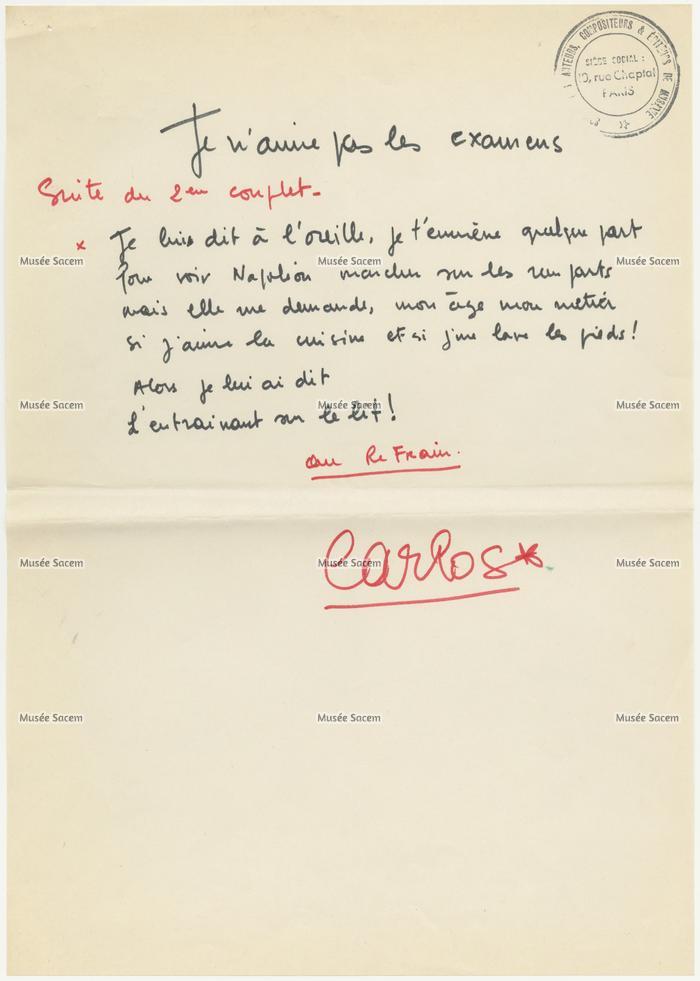 AUTEURS, COMPOSITEURS & ÉDITEURS DE MUSIQUE
SIÈGE SOCIAL :
10, rue Chaptal
PARIS
Je n'aime pas les examens
Suite du 2em couplet.
x Je luis dit à l'oreille, je t'emmène quelque part
Pour voir Napoléon marcher sur les remparts
mais elle me demande, mon âge mon métier
si j'aime la cuisine et si j'me lave les pieds!
Alors je lui ai dit
L'entrainant sur le lit!
au ReFrain.
Carlos*
Musée Sacem Musée Sacem Musée Sacem
Musée Sacem Musée Sacem Musée Sacem
Musée Sacem Musée Sacem Musée Sacem
Musée Sacem Musée Sacem Musée Sacem